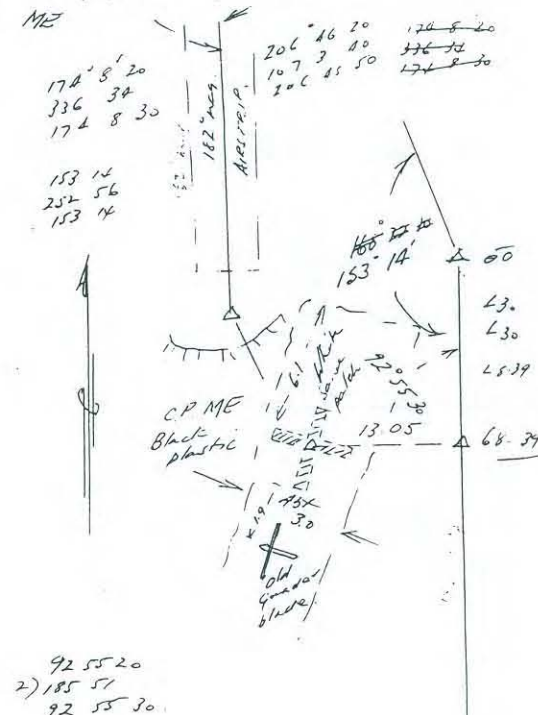 ME
174° 8' 20
336 34
174 8 30
153 14
252 56
153 14
182° mag.
AIRSTRIP
206° 46 20
107 3 40
206 45 50
174 8 20
336 34
174 8 30
153° 14'
60
L30
L30
L8.39
68.39
92° 55 30
13.05
6.1
White
Patch
C.P. ME
Black
plastic
3.0
1.9
Old
Grader
blade
92 55 20
2) 185 51
92 55 30